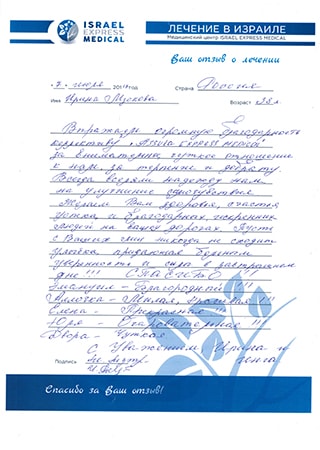 ISRAEL
EXPRESS
MEDICAL
ЛЕЧЕНИЕ В ИЗРАИЛЕ
Медицинский центр ISRAEL EXPRESS MEDICAL
Ваш отзыв о лечении
Страна Россия
Имя Ирина Возраст
Выражаю огромную благодарность
коллективу
за внимательное, чуткое отношение
к нам, за терпение и доброту.
Всегда вселяли надежду нам
на улучшение самочувствия.
Желаем Вам здоровья, счастья
успеха и благодарных, искренних
людей на ваших дорогах. Пусть
с Ваших лиц никогда не сходит
улыбка придающая больным
уверенность и сил в завтрашнем
дне!!! СПАСИБО!!!
Эмануил - Благородный!!!
Аллочка - Милая, Красивая!!!
Елена - Прекрасная!!!
Юля - Очаровательная!!!
Двора - Чуткая
С Уважением Ирина и
Подпись
Спасибо за Ваш отзыв!